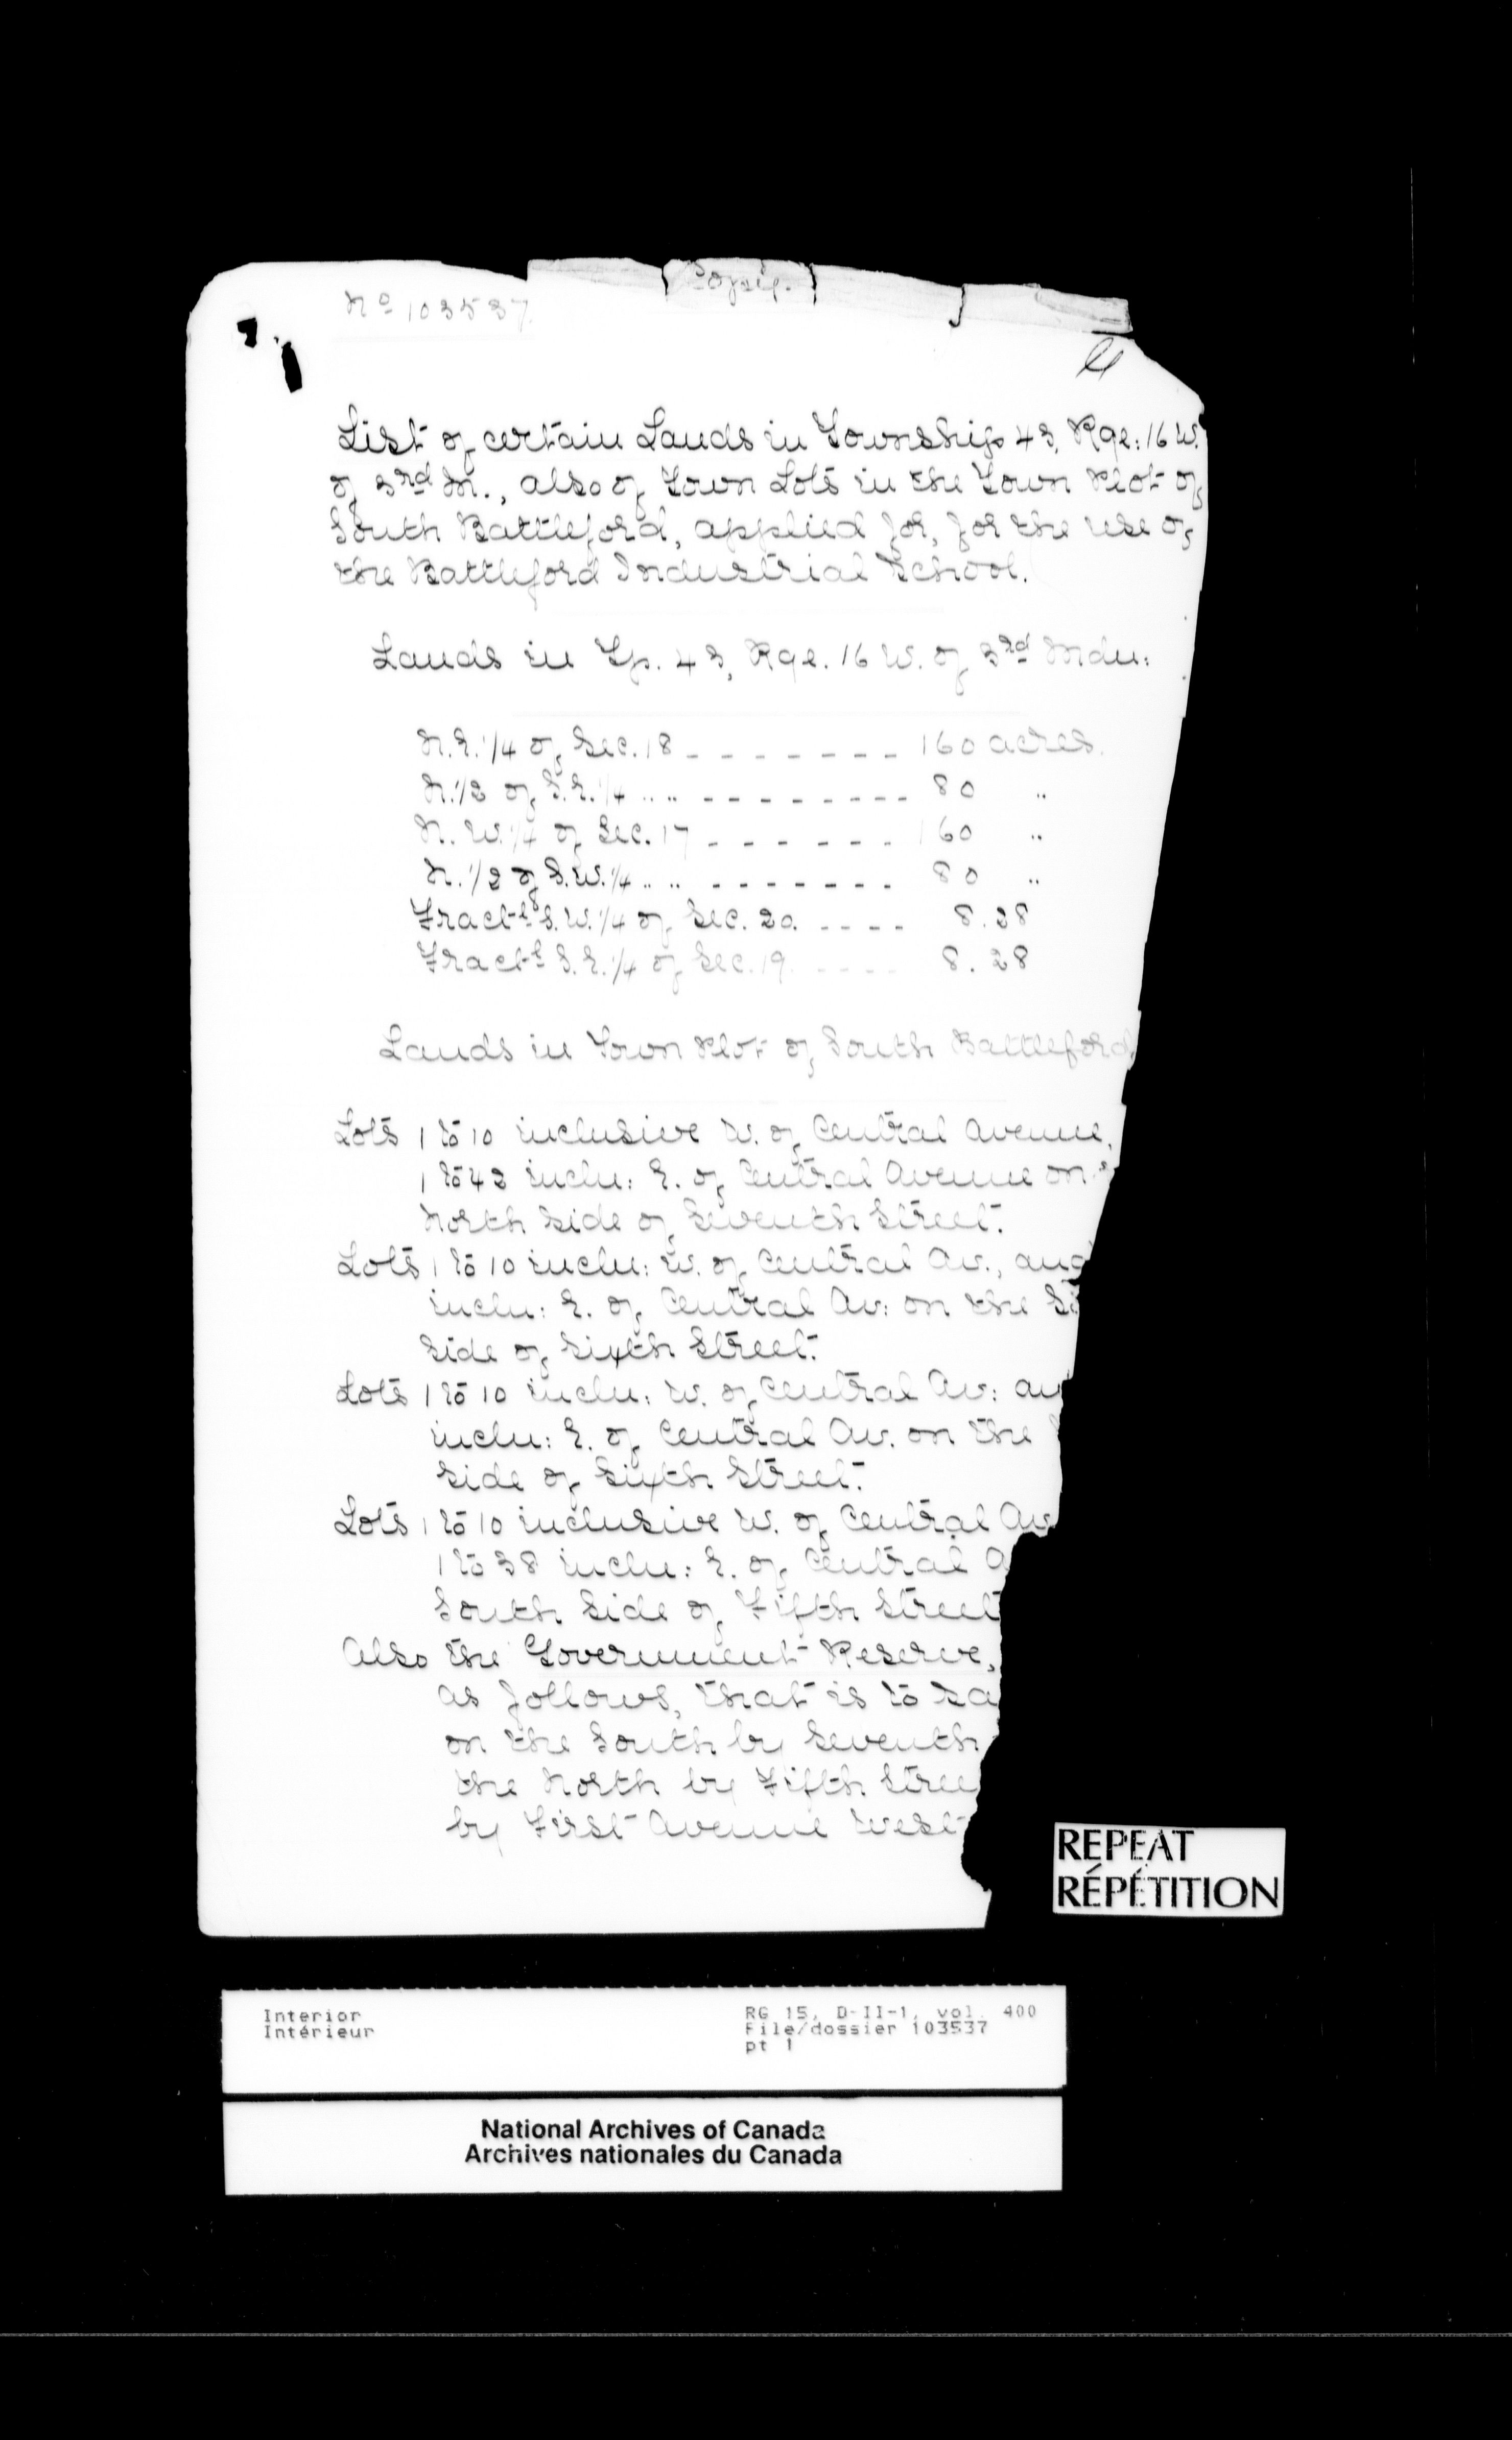 Copy.
No 103537.
List of certain Lands in Township 43, Rge: 16 W.
of 3rd M., also of Town Lots in the Town Plot of
South Battleford, applied for, for the use of
the Battleford Industrial School.
Lands in Tp. 43, Rge. 16 W. of 3rd Mdn:
N.E. 1/4 of Sec. 18 _ _ _ _ _ _ _ _ 160 acres.
N. 1/2 of S.E. 1/4 .. .. _ _ _ _ _ _ _ _ 80 "
N. W. 1/4 of Sec. 17 _ _ _ _ _ _ _ 160 "
N. 1/2 of S.W. 1/4 .. .. _ _ _ _ _ _ _ _ 80 "
Fractl S.W. 1/4 of Sec. 20. _ _ _ _ 8.28
Fractl S.E. 1/4 of Sec. 19. _ _ _ _ 8.28
Lands in Town Plot of South Battleford,
Lots 1 to 10 inclusive W. of Central Avenue,
1 to 42 inclu: E. of Central Avenue on
North Side of Seventh Street.
Lots 1 to 10 inclu: W. of Central Av., and
inclu: E. of Central Av: on the
Side of Sixth Street.
Lots 1 to 10 inclu: W. of Central Av: an
inclu: E. of Central Av. on the
Side of Sixth Street.
Lots 1 to 10 inclusive W. of Central Av
1 to 38 inclu: E. of Central A
South Side of Fifth Street
Also the Government Reserve,
as follows, that is to sa
on the South by Seventh
the North by Fifth Stree
by First Avenue West
REPEAT
RÉPÉTITION
Interior
Intérieur
RG 15, D-II-1, vol. 400
File/dossier 103537
pt 1
National Archives of Canada
Archives nationales du Canada